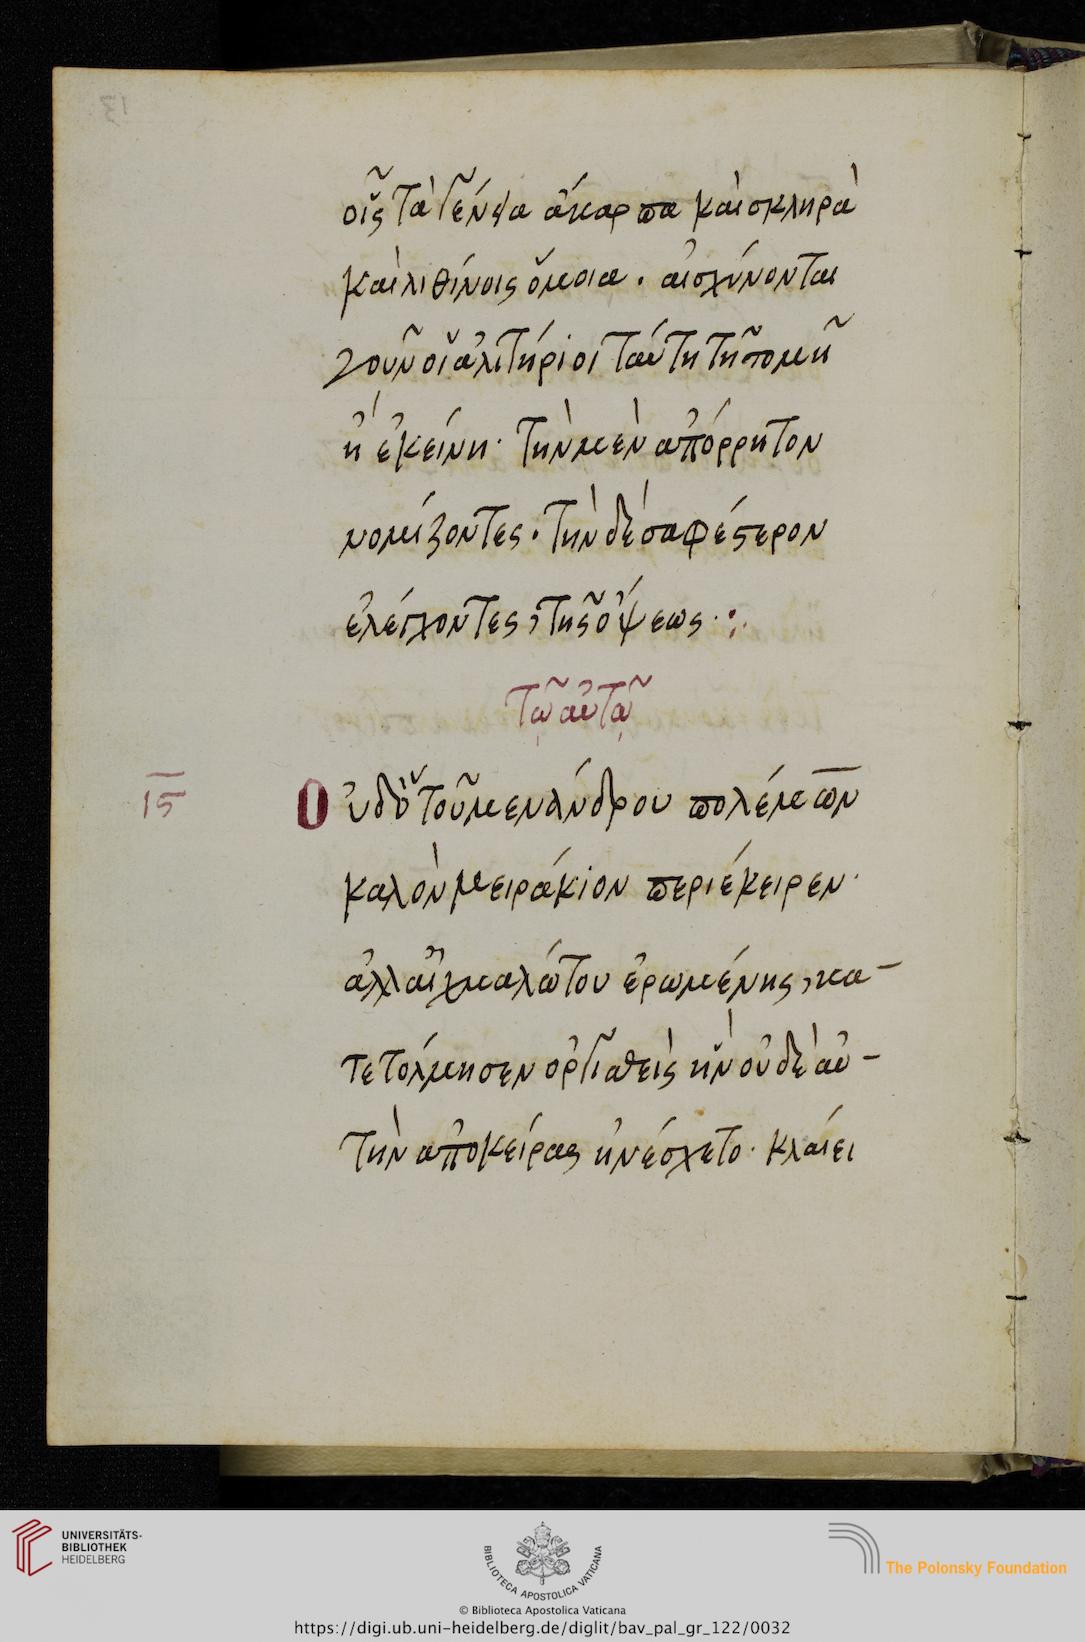 13
οἷς τὰ γένεια ἄκαρπα καὶ σκληρὰ
καὶ λιθίνοις ὅμοια. αἰσχύνονται
γοῦν οἱ ἀλιτήριοι ταύτῃ τῇ τομῇ
ἢ ἐκείνῃ· τὴν μὲν ἀπόρρητον
νομίζοντες. τὴν δὲ σαφέστερον
ἐλέγχοντες, τῆς ὄψεως·:
Τῷ αὐτῷ
15
Οὐδ' ὁ τοῦ μενάνδρου πολέμων
καλὸν μειράκιον περιέκειρεν·
ἀλλ αἰχμαλώτου ἐρωμένης, κα-
τετόλμησεν ὀργιαθεὶς ἣν οὐδὲ αὐ-
τὴν ἀποκείρας ἠνέσχετο· κλαίει
UNIVERSITÄTS-
BIBLIOTHEK
HEIDELBERG
BIBLIOTECA APOSTOLICA VATICANA
The Polonsky Foundation
© Biblioteca Apostolica Vaticana
https://digi.ub.uni-heidelberg.de/diglit/bav_pal_gr_122/0032